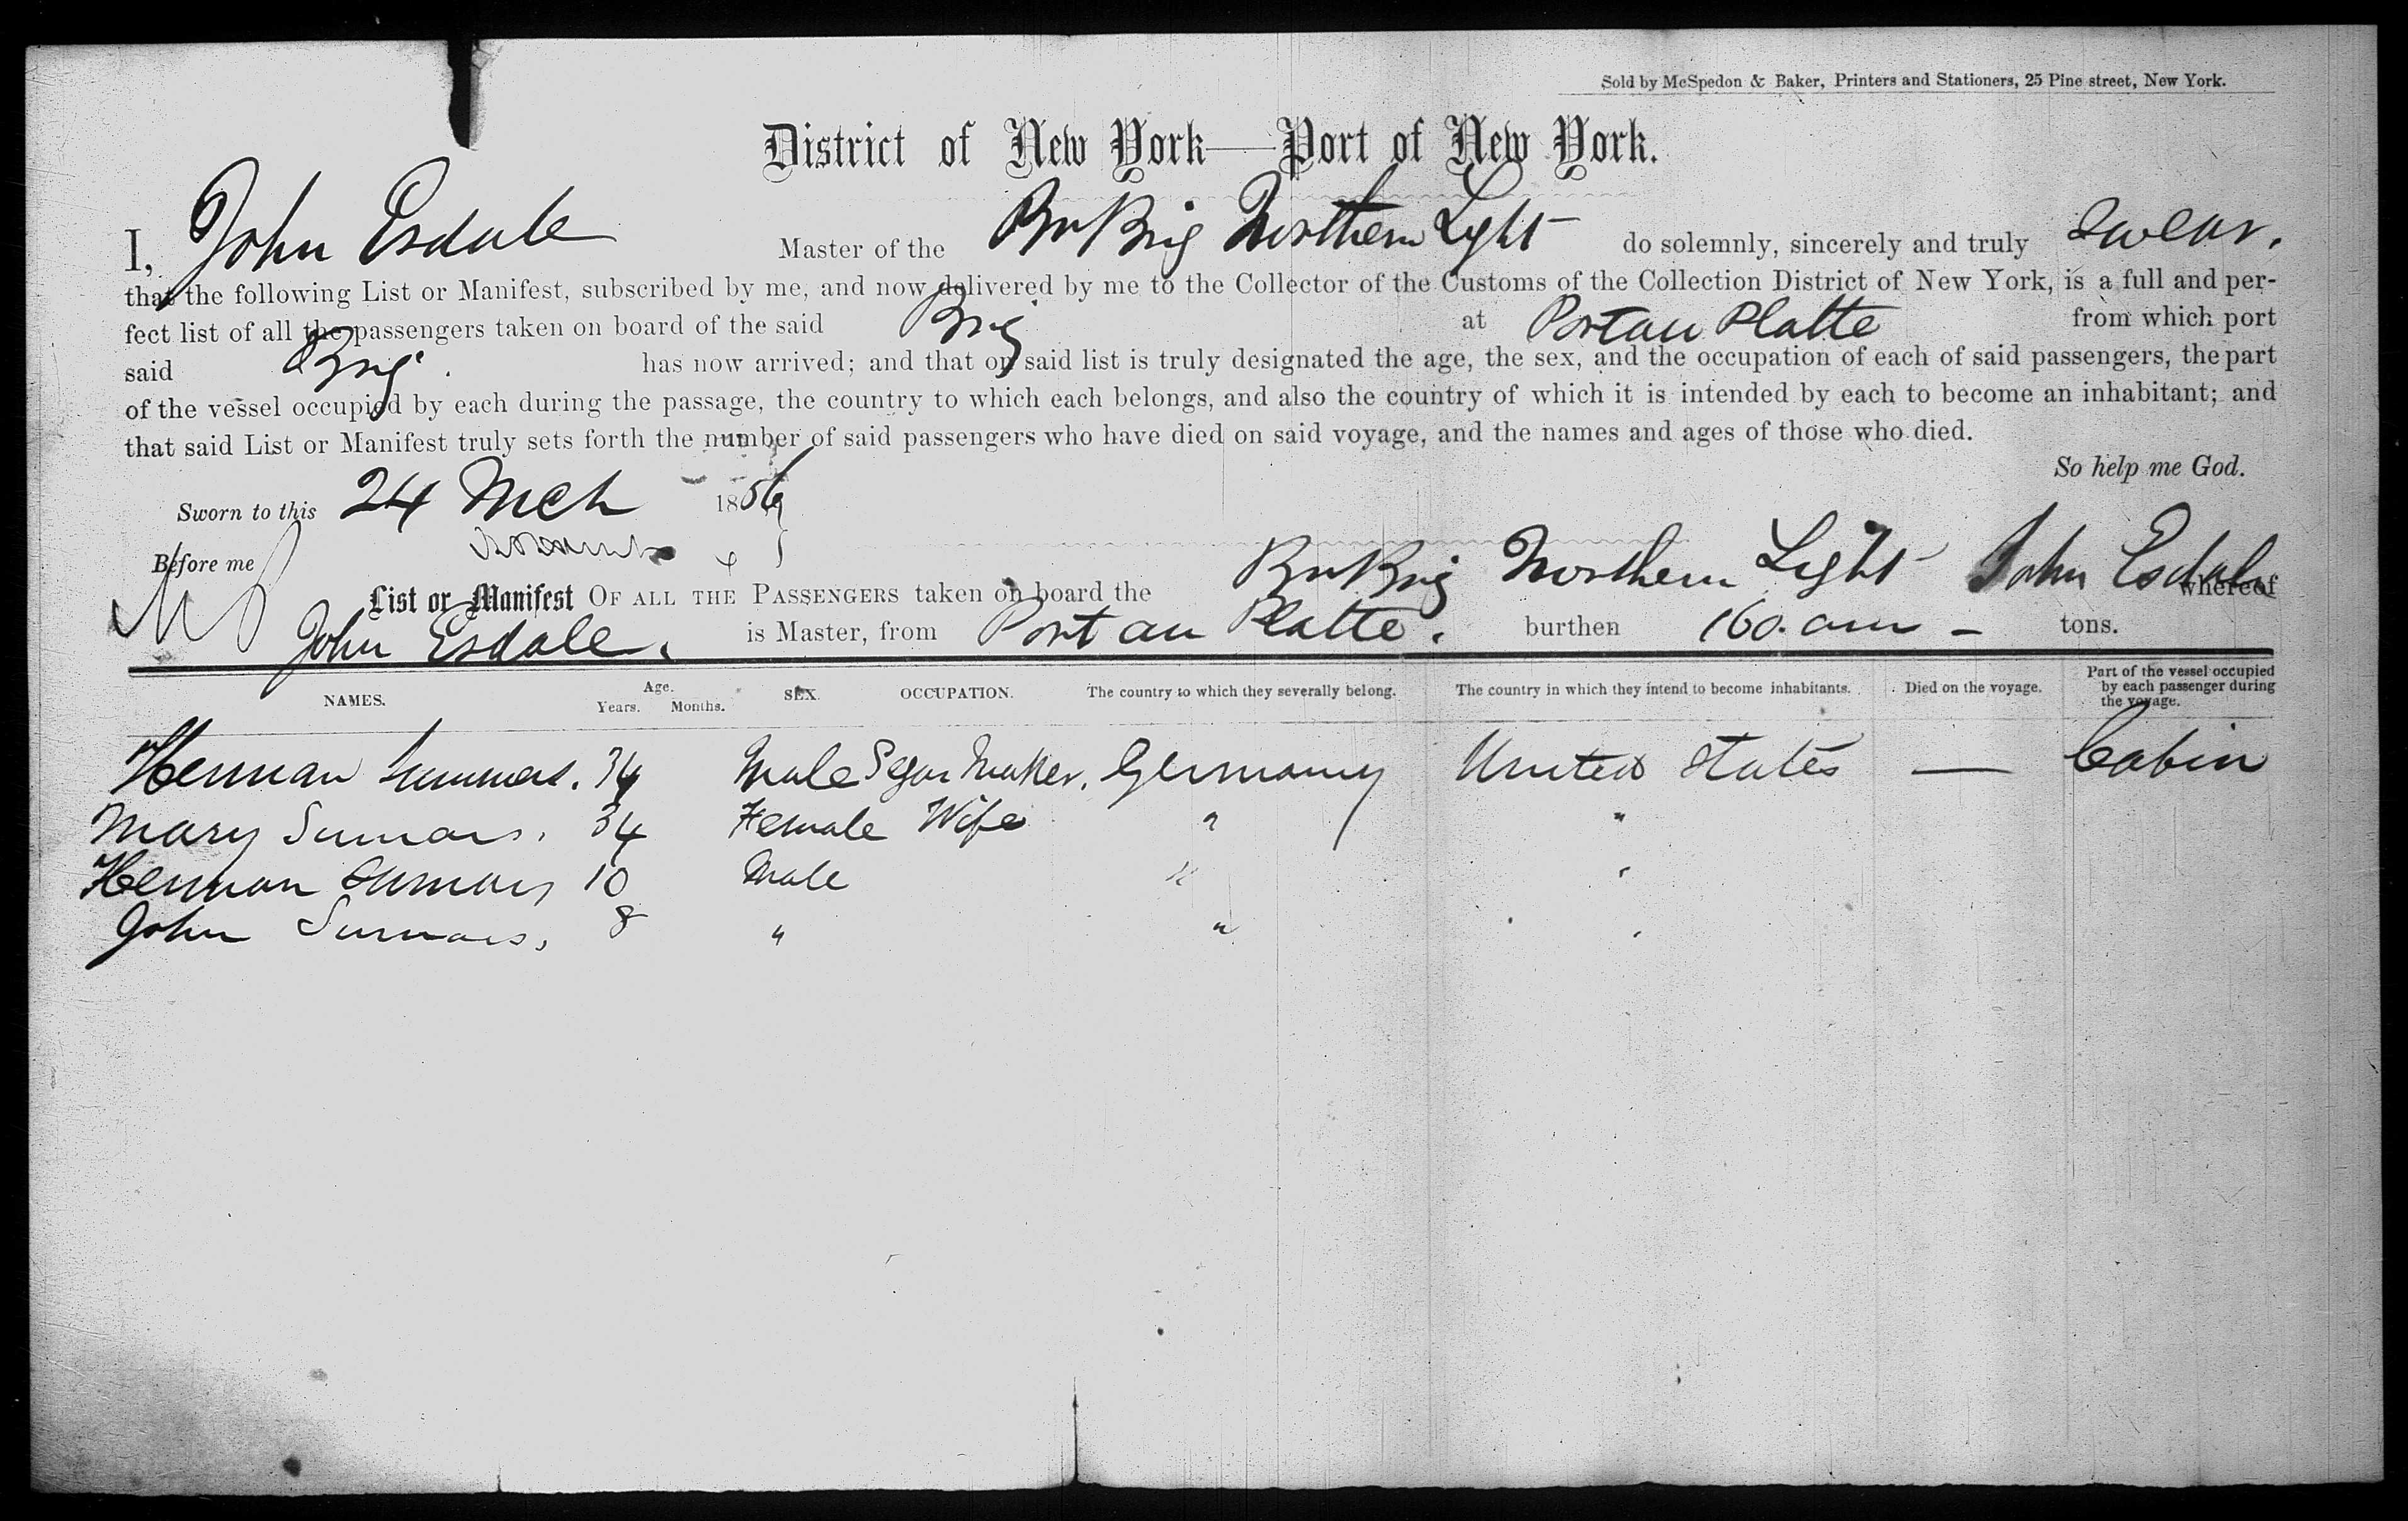 Sold by McSpedon & Baker, Printers and Stationers, 25 Pine street, New York.
District of New York—Port of New York.
I, John Esdale Master of the Br Brig Northern Light do solemnly, sincerely and truly swear.
that the following List or Manifest, subscribed by me, and now delivered by me to the Collector of the Customs of the Collection District of New York, is a full and per-
fect list of all the passengers taken on board of the said Brig at Port au Platte from which port
said Brig. has now arrived; and that on said list is truly designated the age, the sex, and the occupation of each of said passengers, the part
of the vessel occupied by each during the passage, the country to which each belongs, and also the country of which it is intended by each to become an inhabitant; and
that said List or Manifest truly sets forth the number of said passengers who have died on said voyage, and the names and ages of those who died.
So help me God.
Sworn to this 24 Mch 1856
Before me John Esdale
List or Manifest OF ALL THE PASSENGERS taken on board the Br Brig Northern Light whereof
John Esdale. is Master, from Port au Platte. burthen 160. tons.
NAMES. Age. Years. Months. SEX. OCCUPATION. The country to which they severally belong. The country in which they intend to become inhabitants. Died on the voyage. Part of the vessel occupied by each passenger during the voyage.
Herman 34 Male Segar Maker. Germany United States — Cabin
Mary 34 Female Wife " "
Herman 10 Male " "
John 8 " " "